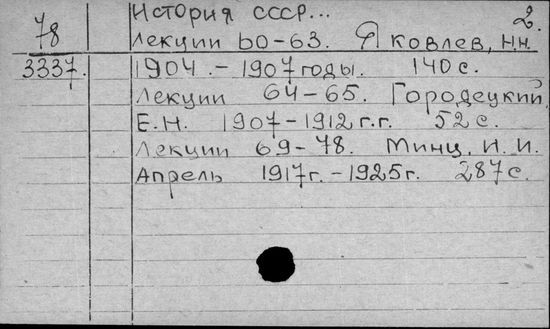 История СССР... 2.
78 Лекции 60-63. Яковлев, Н.Н.
3337. 1904.-1907 годы. 140 с.
Лекции 64-65. Городецкий
Е.Н. 1907-1912 г.г. 52 с.
Лекции 69-78. Минц, И. И.
Апрель 1917г.-1925г. 287 с.